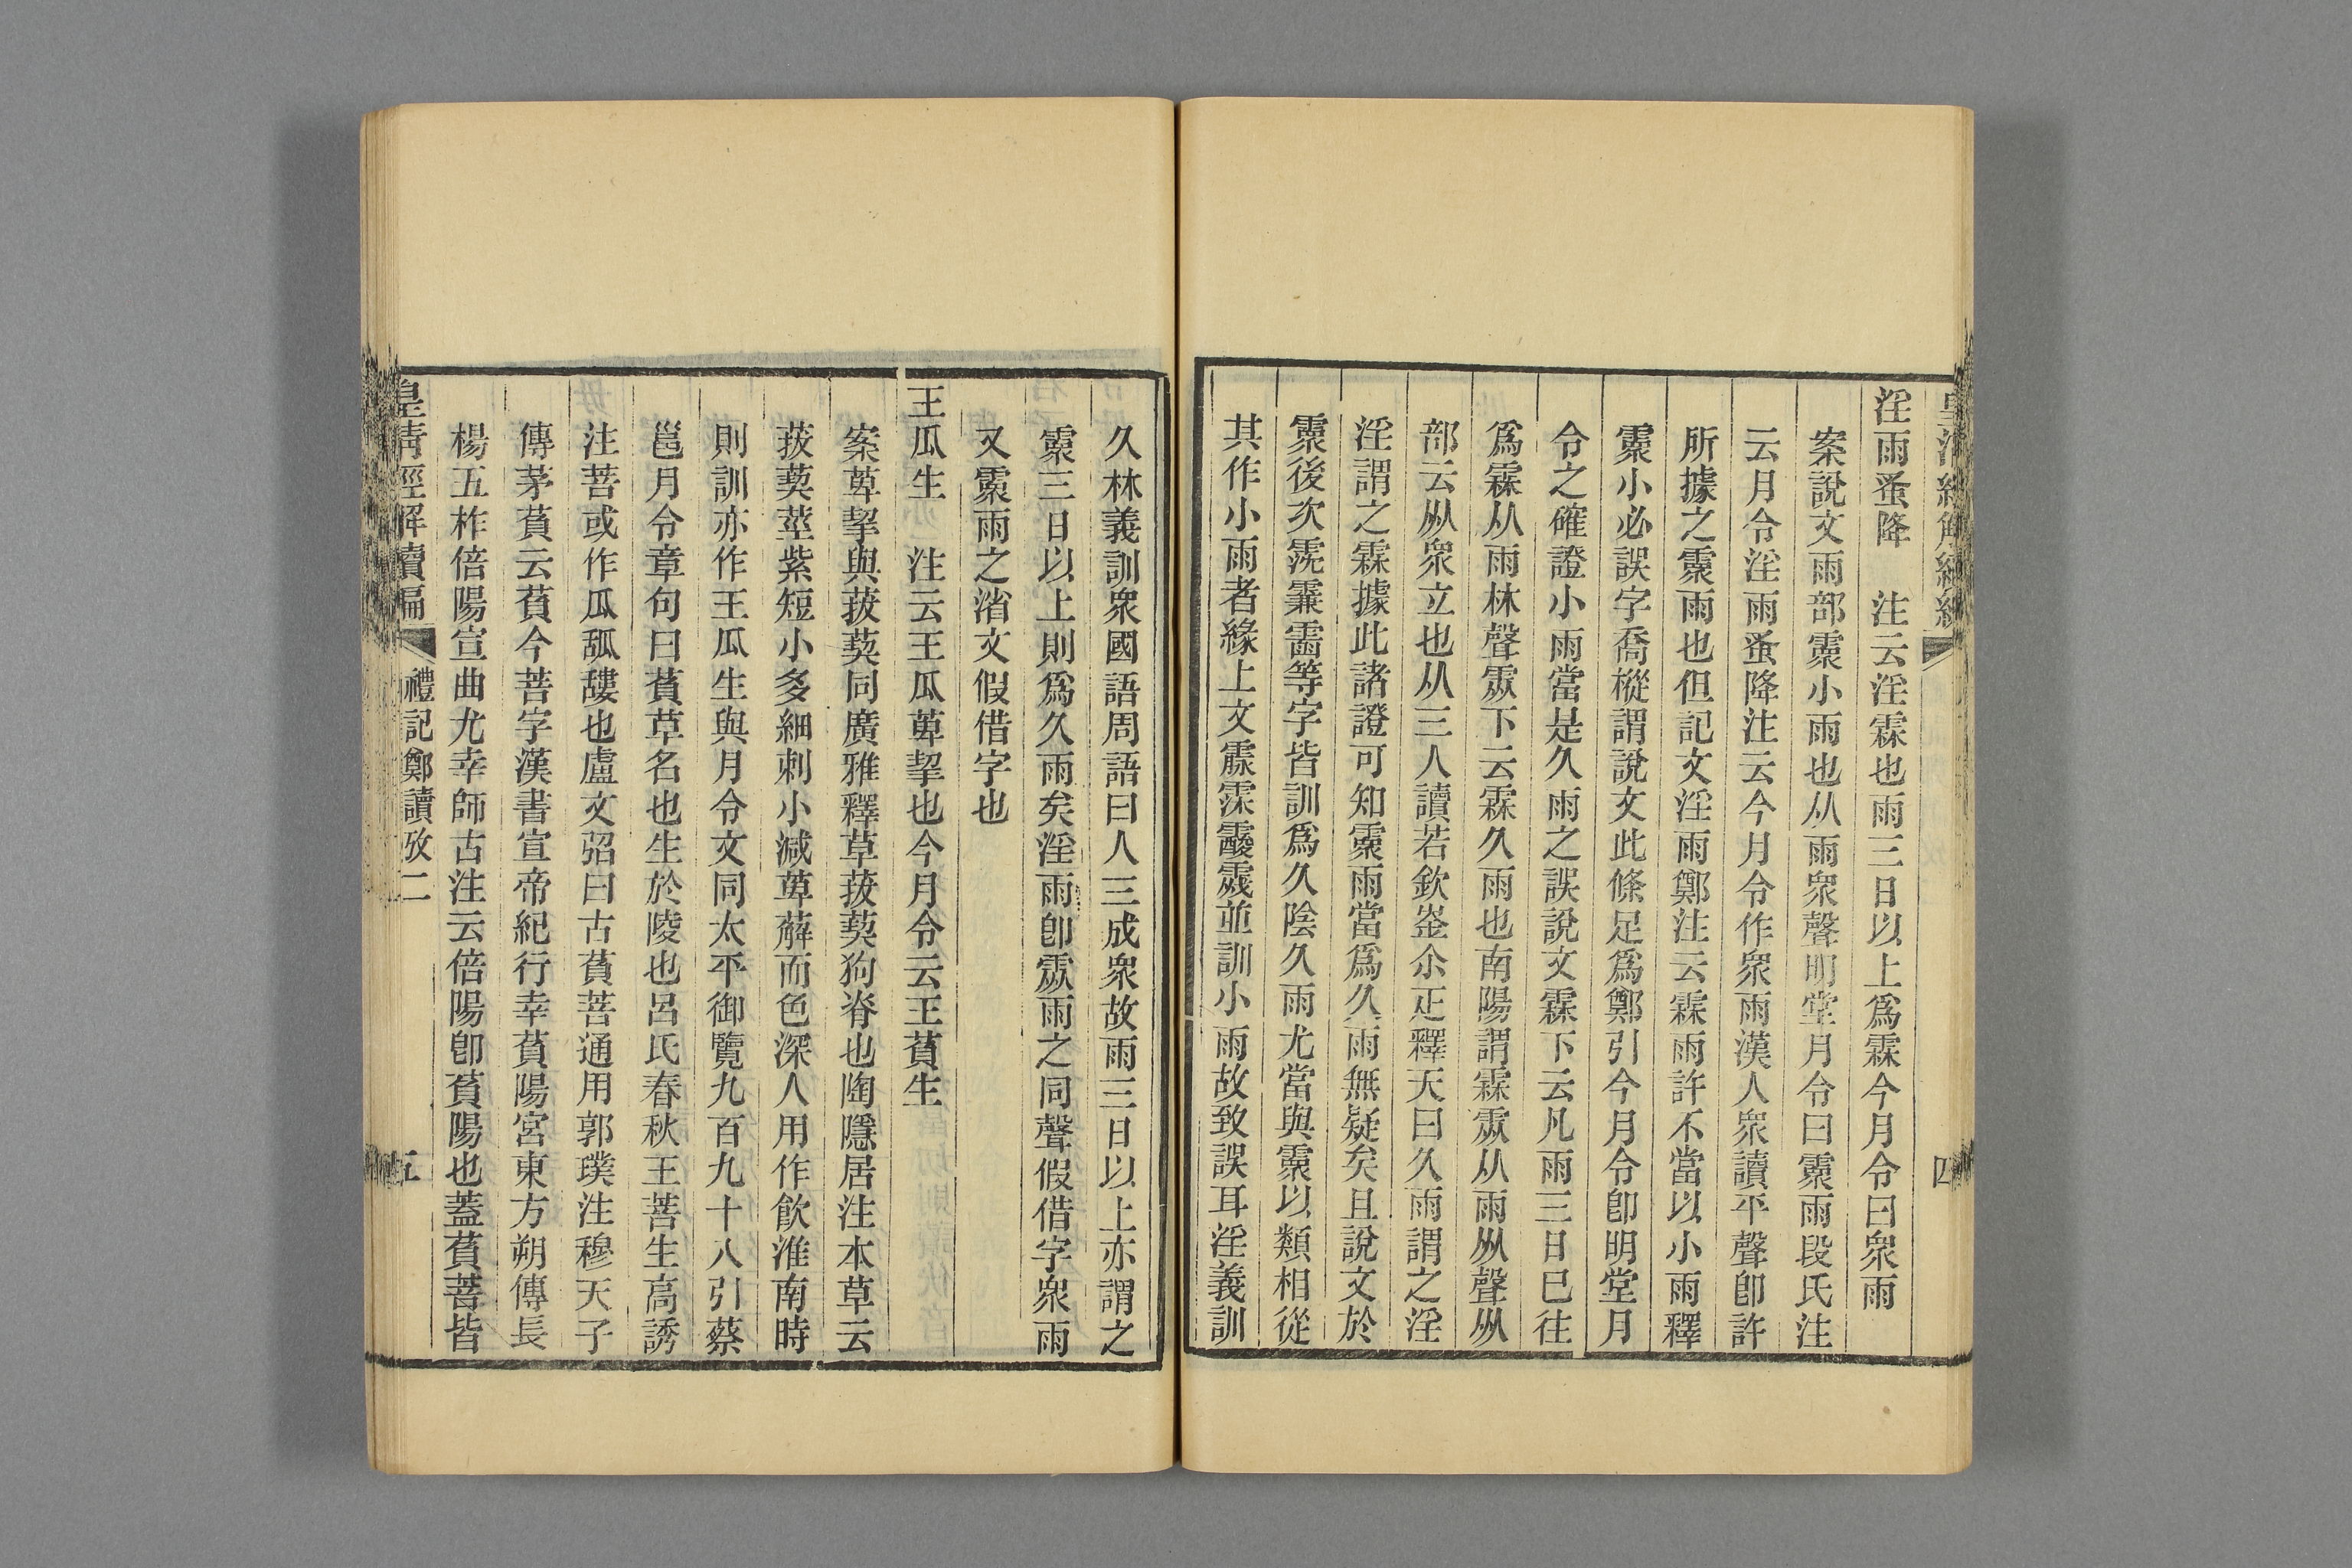 淫雨蚤降　注云淫霖也雨三日以上爲霖今月令曰衆雨
案說文雨部霥小雨也从雨衆聲明堂月令曰霥雨段氏注
云月令淫雨蚤降注云今月令作衆雨漢人衆讀平聲卽許
所據之霥雨也但記文淫雨鄭注云霖雨許不當以小雨釋
霥小必誤字喬樅謂說文此條足爲鄭引今月令卽明堂月
令之確證小雨當是久雨之誤說文霖下云凡雨三日已往
爲霖从雨林聲䨙下云霖久雨也南陽謂霖䨙从雨㐺聲㐺
部云㐺衆立也从三人讀若欽崟尒疋釋天曰久雨謂之淫
淫謂之霖據此諸證可知霥雨當爲久雨無疑矣且說文於
霥後次霃霖霝等字皆訓爲久陰久雨尤當與霥以類相從
其作小雨者緣上文霡霂霰霢並訓小雨故致誤耳淫義訓
久林義訓衆國語周語曰人三成衆故雨三日以上亦謂之
霥三日以上則爲久雨矣淫雨卽䨙雨之同聲假借字衆雨
又霥雨之渻文假借字也
王瓜生　注云王瓜萆挈也今月令云王萯生
案萆挈與菝葜同廣雅釋草菝葜狗脊也陶隱居注本草云
菝葜莖紫短小多細刺小減萆薢而色深人用作飮淮南時
則訓亦作王瓜生與月令文同太平御覽九百九十八引蔡
邕月令章句曰萯草名也生於陵也呂氏春秋王菩生高誘
注菩或作瓜瓳𤬛也盧文弨曰古萯菩通用郭璞注穆天子
傳茅萯云萯今菩字漢書宣帝紀行幸萯陽宮東方朔傳長
楊五柞倍陽宣曲尤幸師古注云倍陽卽萯陽也蓋萯菩皆
皇清經解續編　禮記鄭讀攷二　五